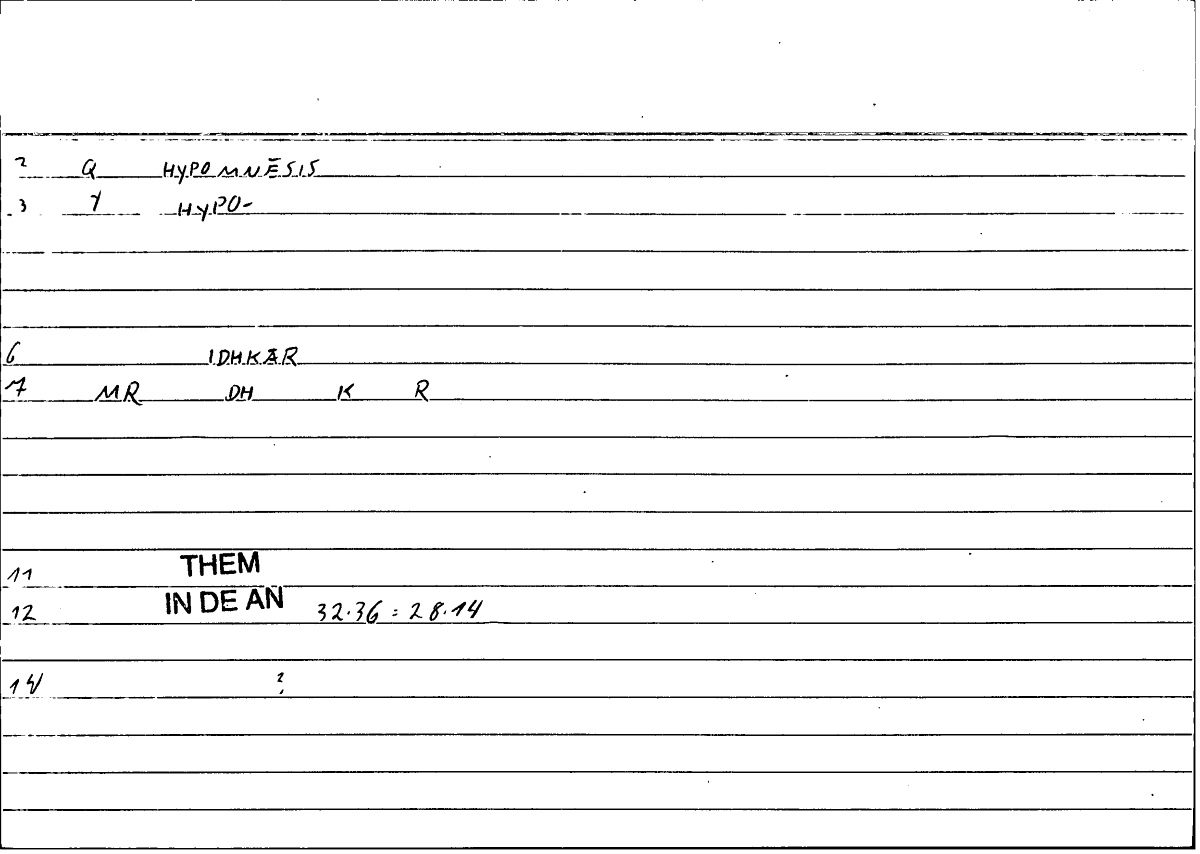 2 Q HYPOMNĒSIS
3 Y HYPO-
6 IDHKĀR
7 MR DH K R
11 THEM
12 IN DE AN 32.36 = 28.14
14 ?